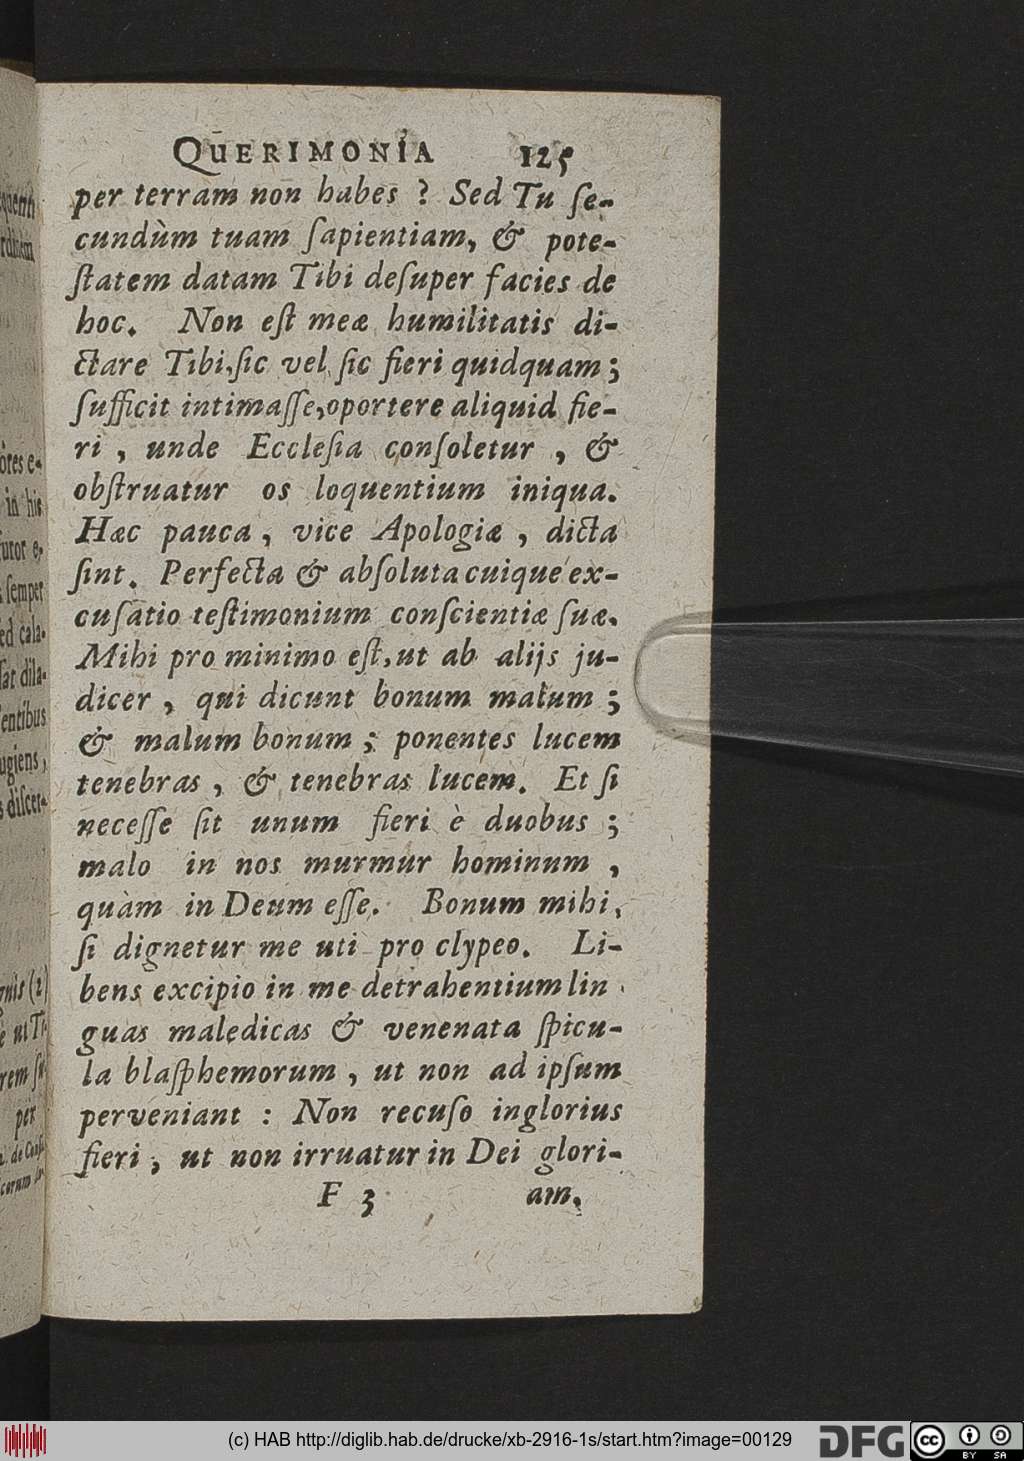 QUERIMONIA 125
per terram non habes ? Sed Tu ſe-
cundùm tuam ſapientiam, & pote-
ſtatem datam Tibi deſuper facies de
hoc. Non eſt meæ humilitatis di-
ctare Tibi,ſic vel ſic fieri quidquam;
ſufficit intimaſſe,oportere aliquid fie-
ri , unde Eccleſia conſoletur , &
obſtruatur os loquentium iniqua.
Hæc pauca , vice Apologiæ , dicta
ſint. Perfecta & abſoluta cuique ex-
cuſatio teſtimonium conſcientiæ ſuæ.
Mihi pro minimo eſt,ut ab alijs ju-
dicer , qui dicunt bonum malum ;
& malum bonum ; ponentes lucem
tenebras , & tenebras lucem. Et ſi
neceſſe ſit unum fieri è duobus ;
malo in nos murmur hominum ,
quàm in Deum eſſe. Bonum mihi,
ſi dignetur me uti pro clypeo. Li-
bens excipio in me detrahentium lin
guas maledicas & venenata ſpicu-
la blaſphemorum , ut non ad ipſum
perveniant : Non recuſo inglorius
fieri , ut non irruatur in Dei glori-
F 3 am,
ores e-
in his
furor e-
ſemper
ed cala-
dila-
entibus
ugiens,
diſcer-
gnis (2)
per
(c) HAB http://diglib.hab.de/drucke/xb-2916-1s/start.htm?image=00129
DFG
cc BY SA